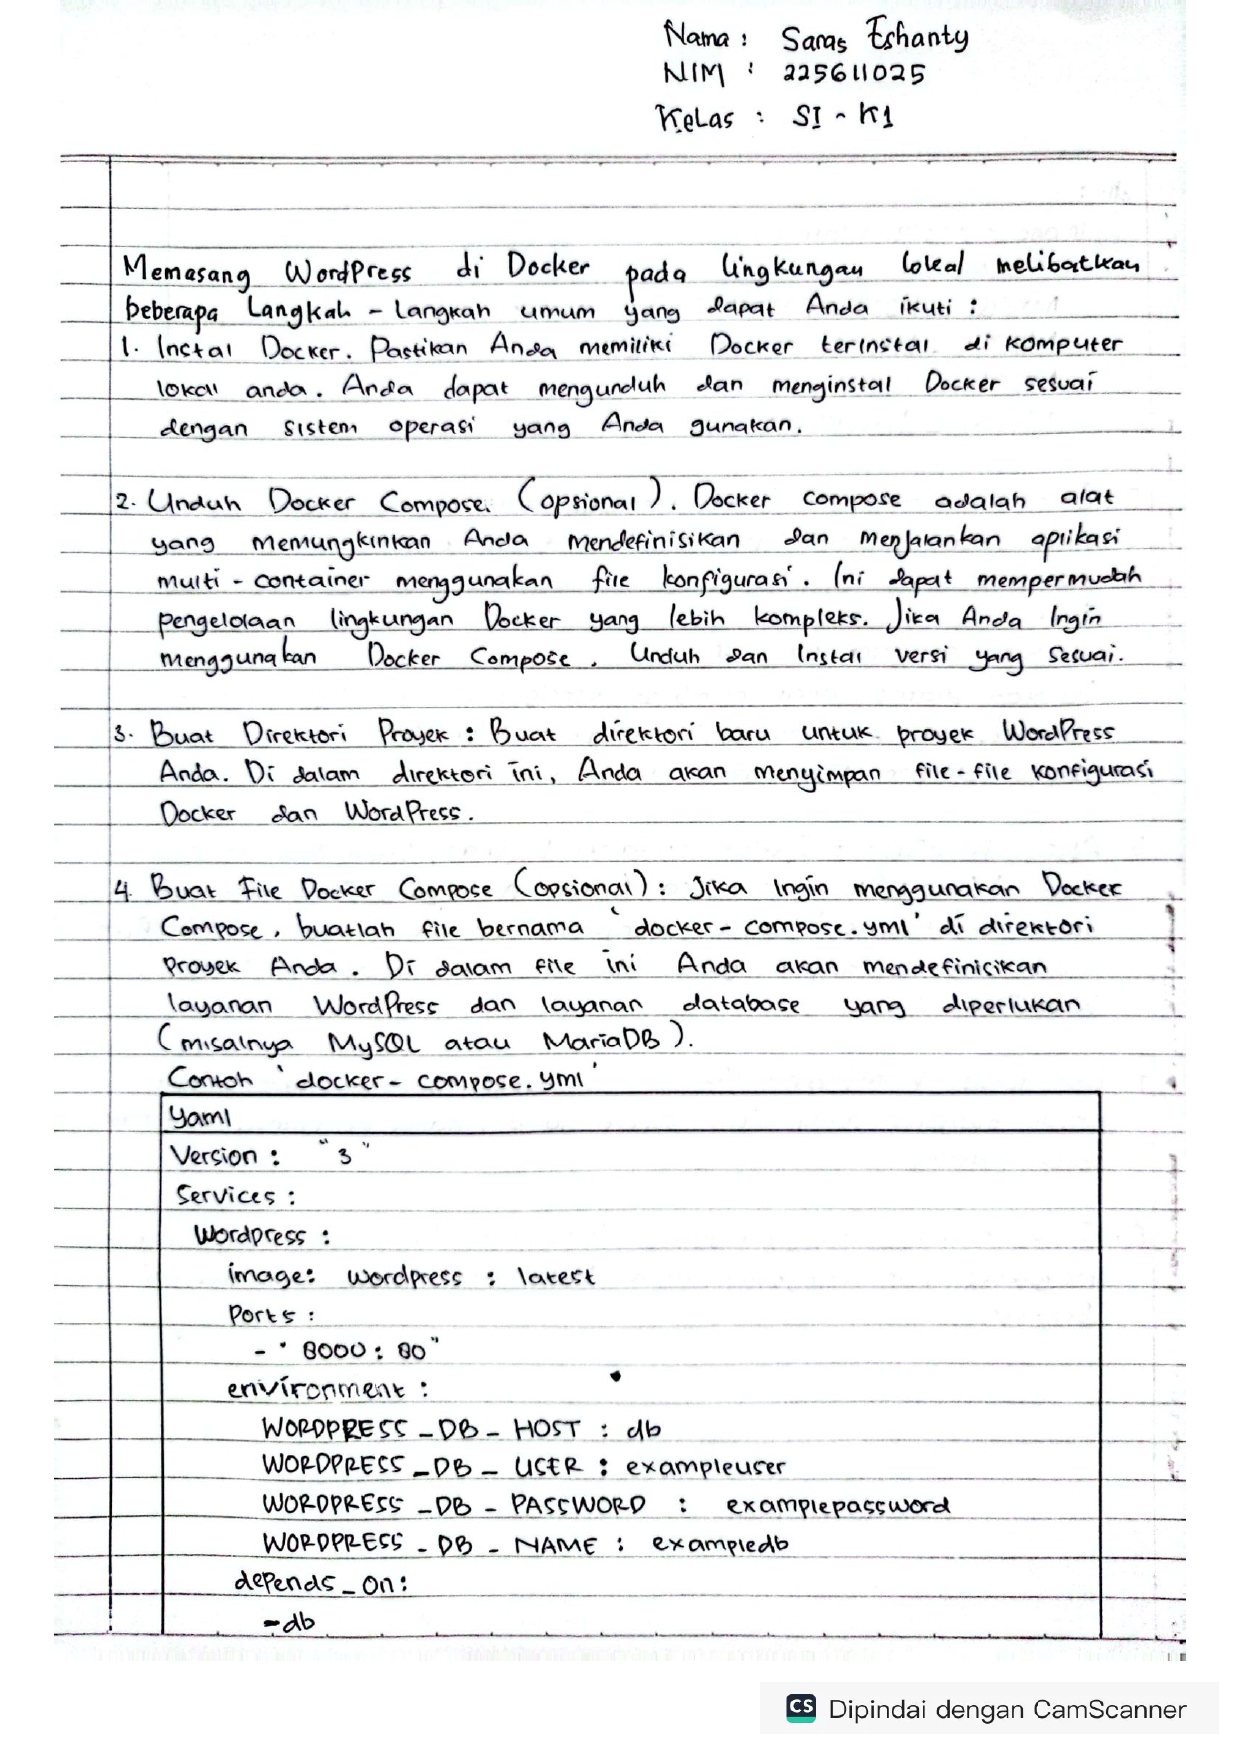 Nama : Saras Eshanty
NIM : 225611025
Kelas : SI - K1
Memasang WordPress di Docker pada lingkungan lokal melibatkan
beberapa Langkah - langkah umum yang dapat Anda ikuti :
1. Instal Docker. Pastikan Anda memiliki Docker terinstal di komputer
lokal anda. Anda dapat mengunduh dan menginstal Docker sesuai
dengan sistem operasi yang Anda gunakan.
2. Unduh Docker Compose. (opsional). Docker compose adalah alat
yang memungkinkan Anda mendefinisikan dan menjalankan aplikasi
multi - container menggunakan file konfigurasi. Ini dapat mempermudah
pengelolaan lingkungan Docker yang lebih kompleks. Jika Anda Ingin
menggunakan Docker Compose, Unduh dan Instal versi yang sesuai.
3. Buat Direktori Proyek : Buat direktori baru untuk proyek WordPress
Anda. Di dalam direktori ini, Anda akan menyimpan file - file konfigurasi
Docker dan WordPress.
4. Buat File Docker Compose (opsional) : Jika Ingin menggunakan Docker
Compose, buatlah file bernama 'docker - compose.yml' di direktori
Proyek Anda. Di dalam file ini Anda akan mendefinisikan
layanan WordPress dan layanan database yang diperlukan
(misalnya MySQL atau MariaDB).
Contoh 'docker - compose.yml'
yaml
Version : "3"
Services :
Wordpress :
image: wordpress : latest
Ports :
- "8000 : 80"
environment :
WORDPRESS_DB_HOST : db
WORDPRESS_DB_USER : exampleuser
WORDPRESS_DB_PASSWORD : examplepassword
WORDPRESS_DB_NAME : exampledb
depends_on:
-db
CS Dipindai dengan CamScanner